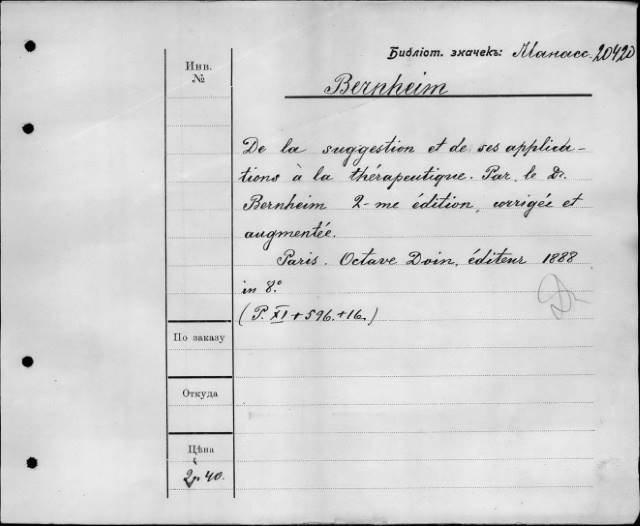 Библіот. значекъ: Манасс. 20420
Инв.
№
Bernheim
De la suggestion et de ses applica-
tions à la thérapeutique. Par le Dr.
Bernheim 2-me édition, corrigée et
augmentée.
Paris. Octave Doin, éditeur 1888
in 8.°
(P. XI + 596. + 16.)
По заказу
Откуда
Цѣна
2р 40.